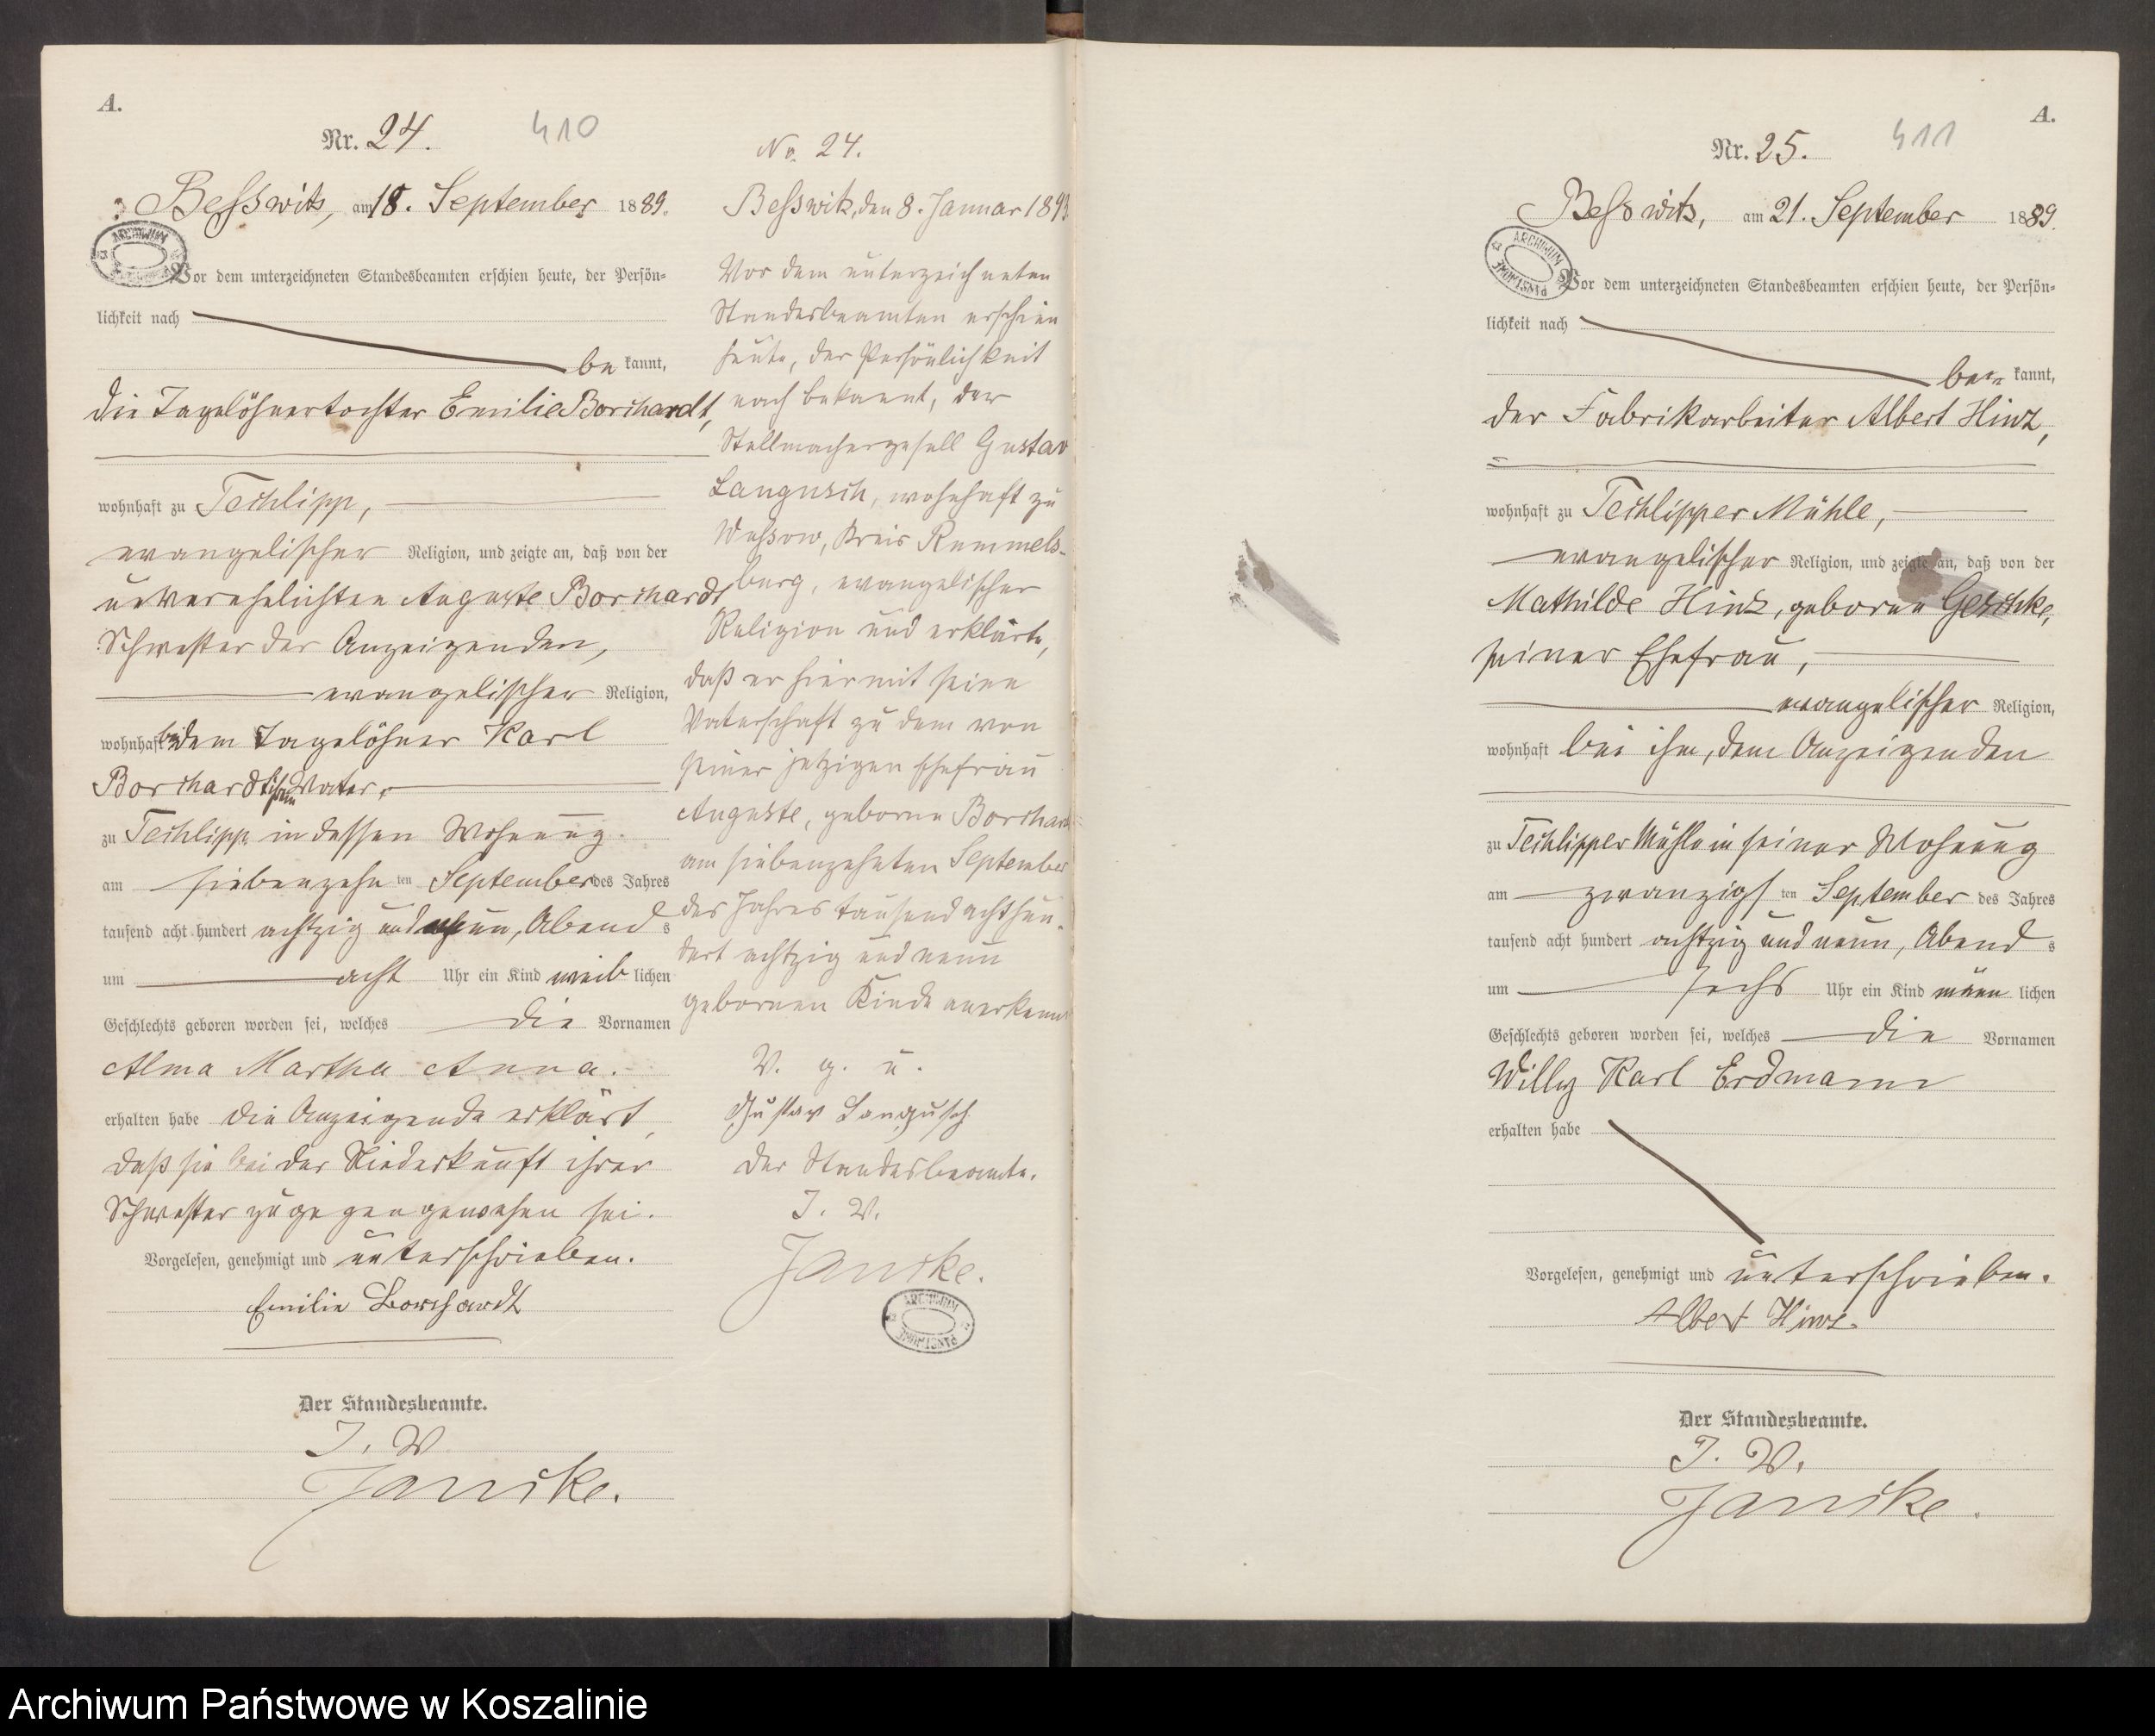 A.
Nr. 24.
410
Beßwitz, am 18. September 1889.
ARCHIWUM
Vor dem unterzeichneten Standesbeamten erschien heute, der Persön=
lichkeit nach
be kannt,
die Tagelöhnertochter Emilie Borchardt,
wohnhaft zu Techlipp,
evangelischer Religion, und zeigte an, daß von der
unverehelichten Auguste Borchardt
Schwester der Anzeigenden,
evangelischer Religion,
wohnhaft bei dem Tagelöhner Karl
Borchardt ihrem Vater,
zu Techlipp in dessen Wohnung.
am siebenzehn ten September des Jahres
tausend acht hundert achtzig und neun, Abend s
um acht Uhr ein Kind weib lichen
Geschlechts geboren worden sei, welches die Vornamen
Alma Martha Anna.
erhalten habe die Anzeigende erklärt,
daß sie bei der Niederkunft ihrer
Schwester zugegen gewesen sei.
Vorgelesen, genehmigt und unterschrieben.
Emilie Borchardt
Der Standesbeamte.
J. V.
Janike.
No. 24.
Beßwitz, den 8. Januar 189
Vor dem unterzeichneten
Standesbeamten erschien
heute, der Persönlichkeit
nach bekannt, der
Stellmachergesell Gustav
Langusch, wohnhaft zu
Wussow, Kreis Rummels-
burg, evangelischer
Religion und erklärte,
daß er hiermit seine
Vaterschaft zu dem von
seiner jetzigen Ehefrau
Auguste, geborne Borchardt
am siebenzehnten September
des Jahres tausend achthun-
dert achtzig und neun
gebornen Kinde anerkenne
V. g. u.
Gustav Langusch
Der Standesbeamte.
J. V.
Janike.
ARCHIWUM
PAŃSTWOWE
A.
Nr. 25.
411
Beßwitz, am 21. September 1889.
ARCHIWUM
PAŃSTWOWE
Vor dem unterzeichneten Standesbeamten erschien heute, der Persön=
lichkeit nach
be kannt,
der Fabrikarbeiter Albert Hinz,
wohnhaft zu Techlipper Mühle,
evangelischer Religion, und zeigte an, daß von der
Mathilde Hinz, geborne Geschke,
seiner Ehefrau,
evangelischer Religion,
wohnhaft bei ihm, dem Anzeigenden
zu Techlipper Mühle in seiner Wohnung
am zwanzigs ten September des Jahres
tausend acht hundert achtzig und neun, Abend s
um sechs Uhr ein Kind männ lichen
Geschlechts geboren worden sei, welches die Vornamen
Willy Karl Erdmann
erhalten habe
Vorgelesen, genehmigt und unterschrieben.
Albert Hinz.
Der Standesbeamte.
J. V.
Janike.
Archiwum Państwowe w Koszalinie